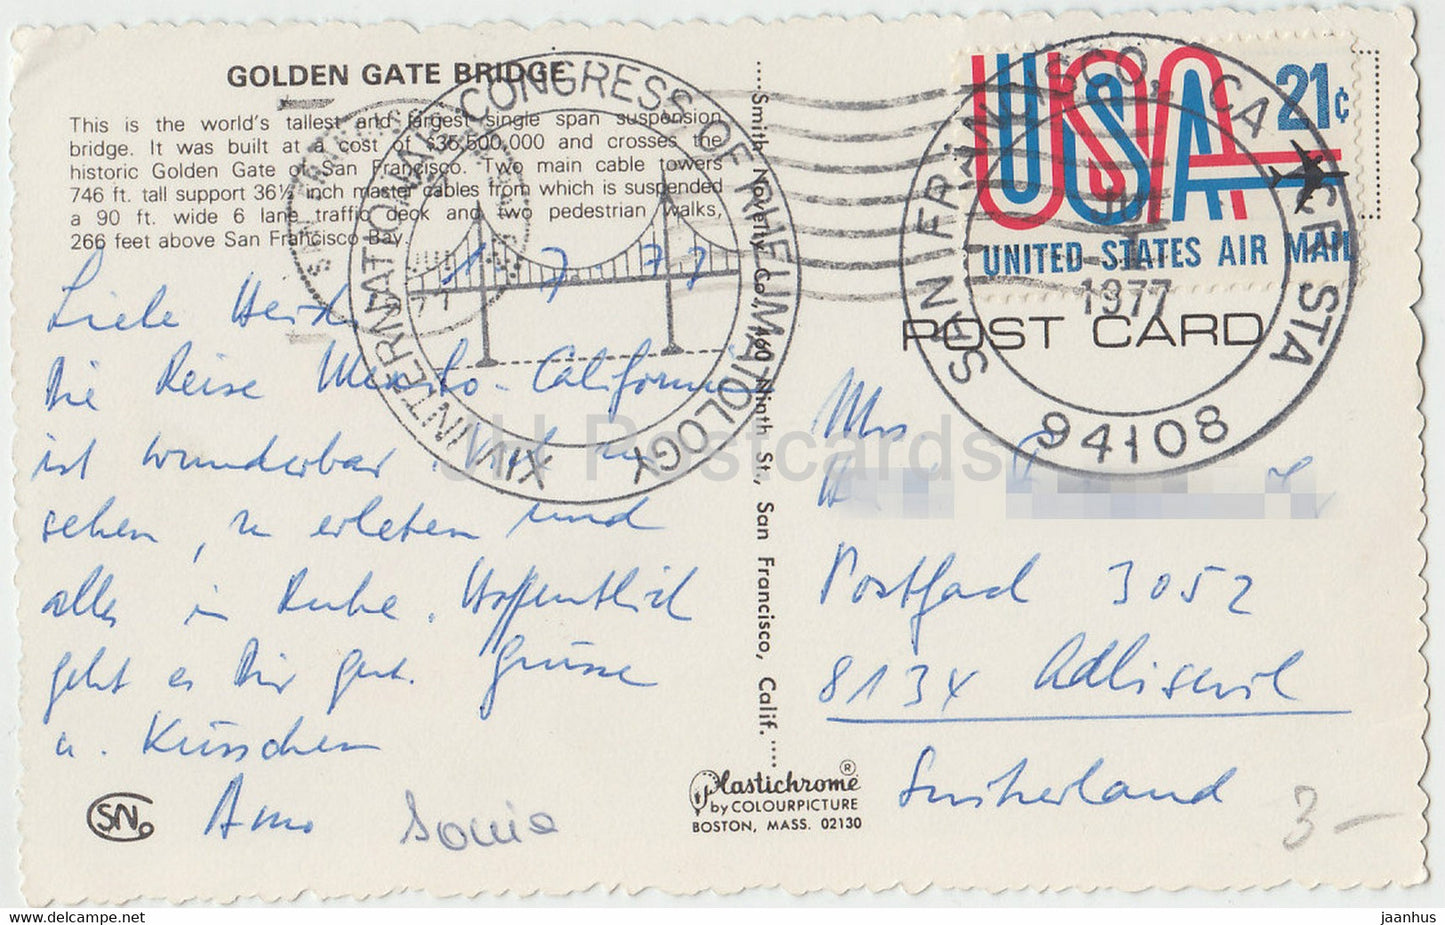 GOLDEN GATE BRIDGE
This is the world's tallest and largest single span suspension
bridge. It was built at a cost of $35,500,000 and crosses the
historic Golden Gate of San Francisco. Two main cable towers
746 ft. tall support 36½ inch master cables from which is suspended
a 90 ft. wide 6 lane traffic deck and two pedestrian walks,
266 feet above San Francisco Bay.
1 7 77
Liebe
Die Reise Mexiko - California
ist wunderbar. Viel zu
sehen, zu erleben und
alles in Ruhe. Hoffentlich
geht es Dir gut. Grüsse
u. Küsschen
Arno Sonia
SN
XIV INTERNATIONAL CONGRESS OF RHEUMATOLOGY
JUL
1977
Smith Novelty Co., 460 Ninth St., San Francisco, Calif.
Plastichrome®
by COLOURPICTURE
BOSTON, MASS. 02130
USA 21¢
UNITED STATES AIR MAIL
SAN FRANCISCO, CA
STA
94108
JUL
1
1977
POST CARD
Mrs
Postfach 3052
8134 Adliswil
Switherland
3-
JH Postcards
https://jhpostcards.com
jaanhus